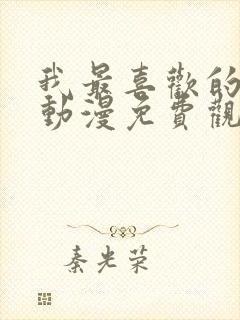 我最喜歡的
動漫免費觀
秦光荣